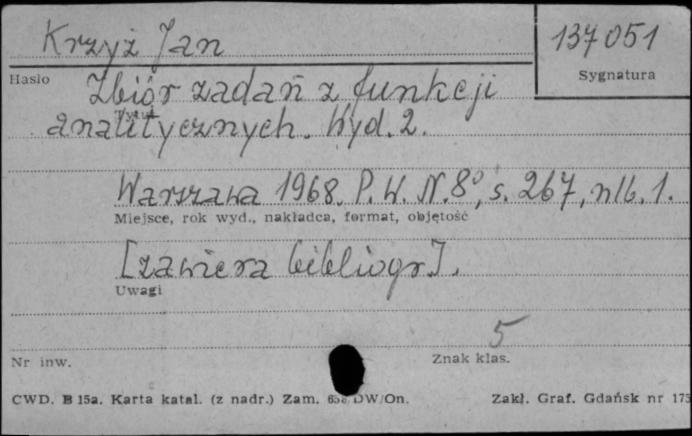 Krzyż Jan
137051
Hasło
Sygnatura
Zbiór zadań z funkcji
Tytuł
analitycznych. Wyd. 2.
Warszawa 1968. P. W. N. 8°, s. 267, nlb. 1.
Miejsce, rok wyd., nakładca, format, objętość
[zawiera bibliogr].
Uwagi
5
Nr inw.
Znak klas.
CWD. B 15a. Karta katal. (z nadr.) Zam. DW/On.
Zakł. Graf. Gdańsk nr 175